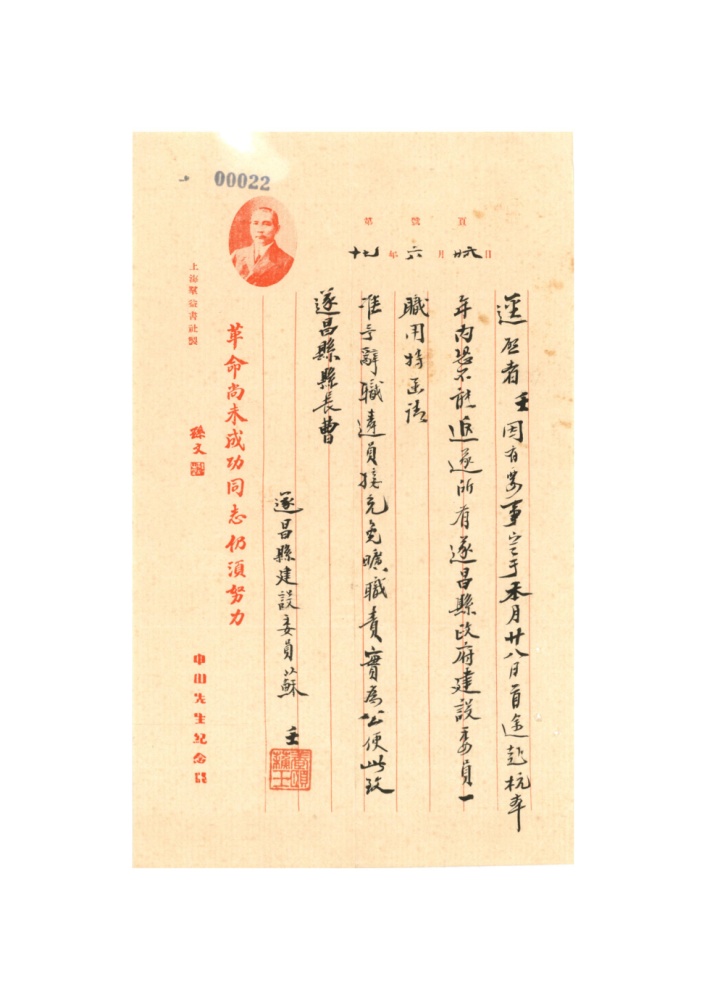 00022
第　號　頁
十九年六月廿六日
逕啓者壬因有要事定于本月廿八日首途赴杭本
年內恐不能返遂所有遂昌縣政府建設委員一
職用特函請
准予辭職遴員接充免曠職責實為公便此致
遂昌縣縣長曹
遂昌縣建設委員蘇壬
革命尚未成功同志仍須努力
孫文
中山先生紀念箋
上海羣益書社製